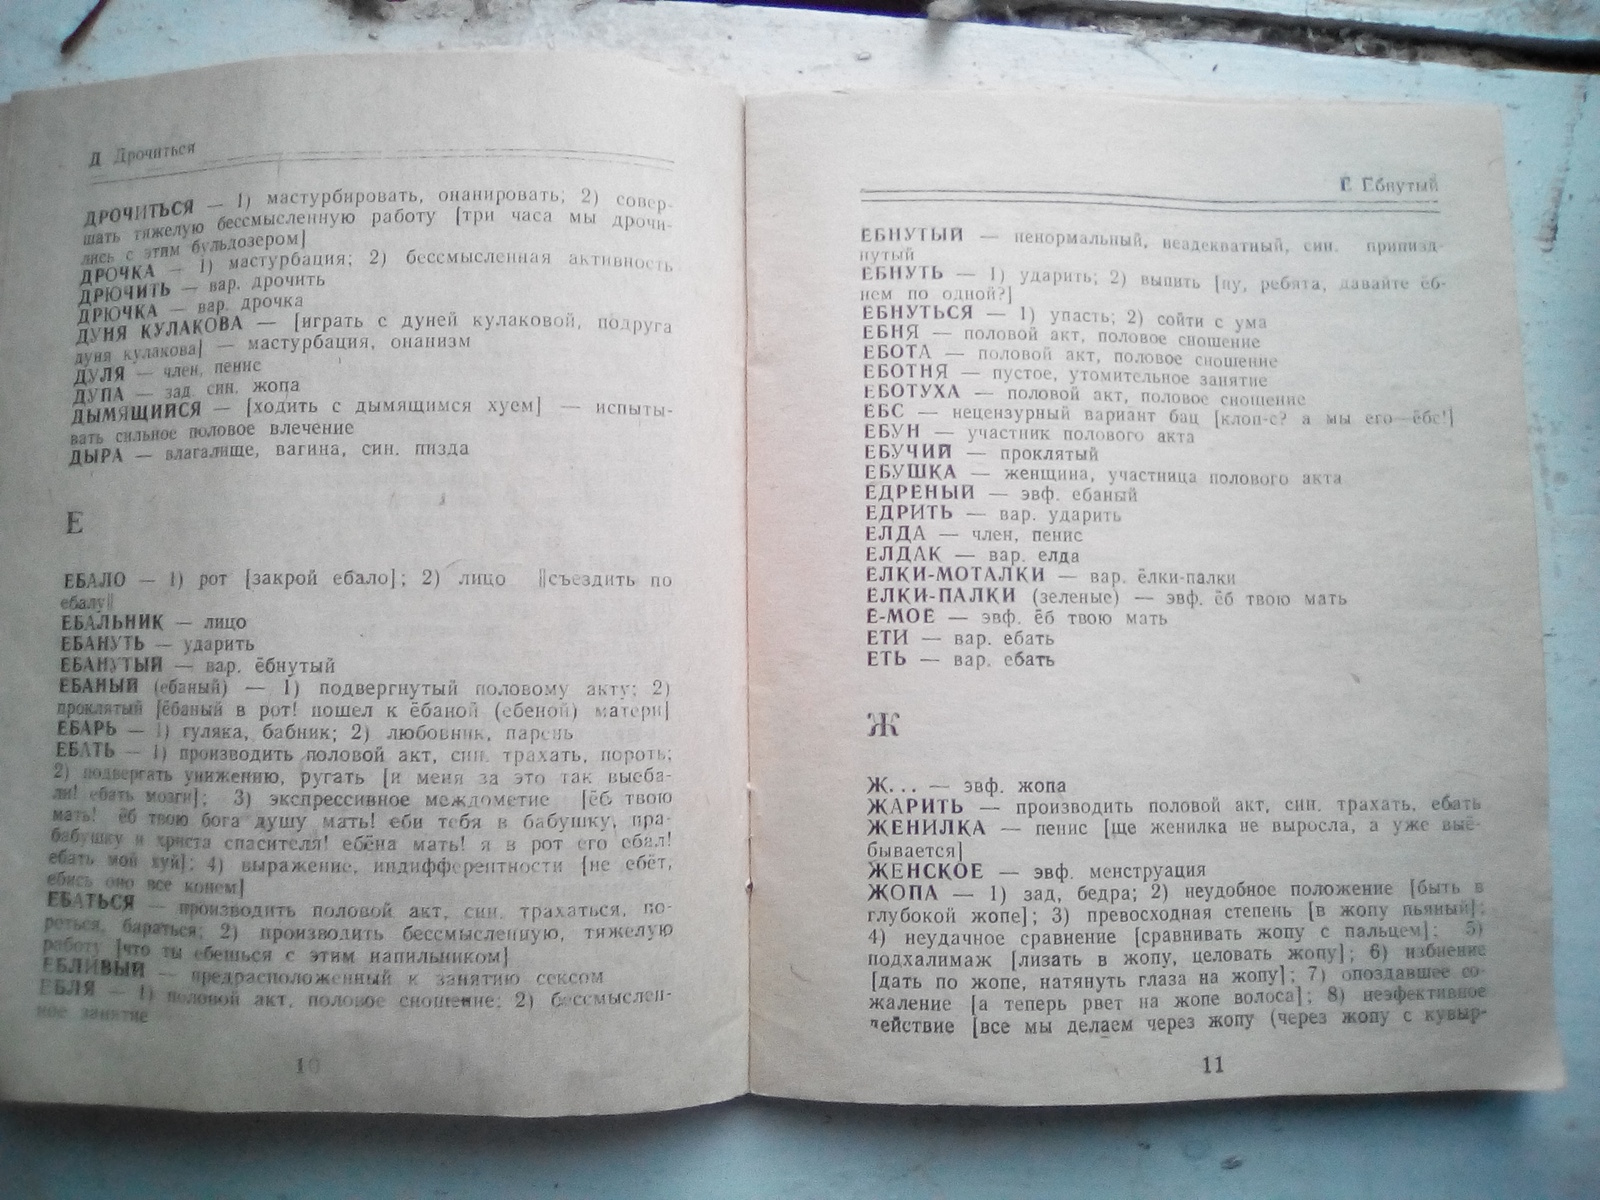 Д Дрочиться
ДРОЧИТЬСЯ — 1) мастурбировать, онанировать; 2) совер-
шать тяжелую бессмысленную работу [три часа мы дрочи-
лись с этим бульдозером]
ДРОЧКА — 1) мастурбация; 2) бессмысленная активность
ДРЮЧИТЬ — вар. дрочить
ДРЮЧКА — вар. дрочка
ДУНЯ КУЛАКОВА — [играть с дуней кулаковой, подруга
дуня кулакова] — мастурбация, онанизм
ДУЛЯ — член, пенис
ДУПА — зад, син. жопа
ДЫМЯЩИЙСЯ — [ходить с дымящимся хуем] — испыты-
вать сильное половое влечение
ДЫРА — влагалище, вагина, син. пизда
Е
ЕБАЛО — 1) рот [закрой ебало]; 2) лицо ||съездить по
ебалу||
ЕБАЛЬНИК — лицо
ЕБАНУТЬ — ударить
ЕБАНУТЫЙ — вар. ёбнутый
ЕБАНЫЙ (ебаный) — 1) подвергнутый половому акту; 2)
проклятый [ёбаный в рот! пошел к ёбаной (ебеной) матери]
ЕБАРЬ — 1) гуляка, бабник; 2) любовник, парень
ЕБАТЬ — 1) производить половой акт, син. трахать, пороть;
2) подвергать унижению, ругать [и меня за это так выеба-
ли! ебать мозги]; 3) экспрессивное междометие [ёб твою
мать! ёб твою бога душу мать! еби тебя в бабушку, пра-
бабушку и христа спасителя! ебёна мать! я в рот его ебал!
ебать мой хуй]; 4) выражение, индифферентности [не ебёт,
ебись оно все конем]
ЕБАТЬСЯ — производить половой акт, син. трахаться, по-
роться, бараться; 2) производить бессмысленную, тяжелую
работу [что ты ебешься с этим напильником]
ЕБЛИВЫЙ — предрасположенный к занятию сексом
ЕБЛЯ — 1) половой акт, половое сношение; 2) бессмыслен-
ное занятие
10
Е Ебнутый
ЕБНУТЫЙ — ненормальный, неадекватный, син. припизд-
нутый
ЕБНУТЬ — 1) ударить; 2) выпить [ну, ребята, давайте ёб-
нем по одной?]
ЕБНУТЬСЯ — 1) упасть; 2) сойти с ума
ЕБНЯ — половой акт, половое сношение
ЕБОТА — половой акт, половое сношение
ЕБОТНЯ — пустое, утомительное занятие
ЕБОТУХА — половой акт, половое сношение
ЁБС — нецензурный вариант бац [клоп-с? а мы его—ёбс!]
ЕБУН — участник полового акта
ЕБУЧИЙ — проклятый
ЕБУШКА — женщина, участница полового акта
ЕДРЕНЫЙ — эвф. ебаный
ЕДРИТЬ — вар. ударить
ЕЛДА — член, пенис
ЕЛДАК — вар. елда
ЕЛКИ-МОТАЛКИ — вар. ёлки-палки
ЕЛКИ-ПАЛКИ (зеленые) — эвф. ёб твою мать
Ё-МОЕ — эвф. ёб твою мать
ЕТИ — вар. ебать
ЕТЬ — вар. ебать
Ж
Ж... — эвф. жопа
ЖАРИТЬ — производить половой акт, син. трахать, ебать
ЖЕНИЛКА — пенис [ще женилка не выросла, а уже выё-
бывается]
ЖЕНСКОЕ — эвф. менструация
ЖОПА — 1) зад, бедра; 2) неудобное положение [быть в
глубокой жопе]; 3) превосходная степень [в жопу пьяный];
4) неудачное сравнение [сравнивать жопу с пальцем]; 5)
подхалимаж [лизать в жопу, целовать жопу]; 6) избиение
[дать по жопе, натянуть глаза на жопу]; 7) опоздавшее со-
жаление [а теперь рвет на жопе волоса]; 8) неэфективное
действие [все мы делаем через жопу (через жопу с кувыр-
11